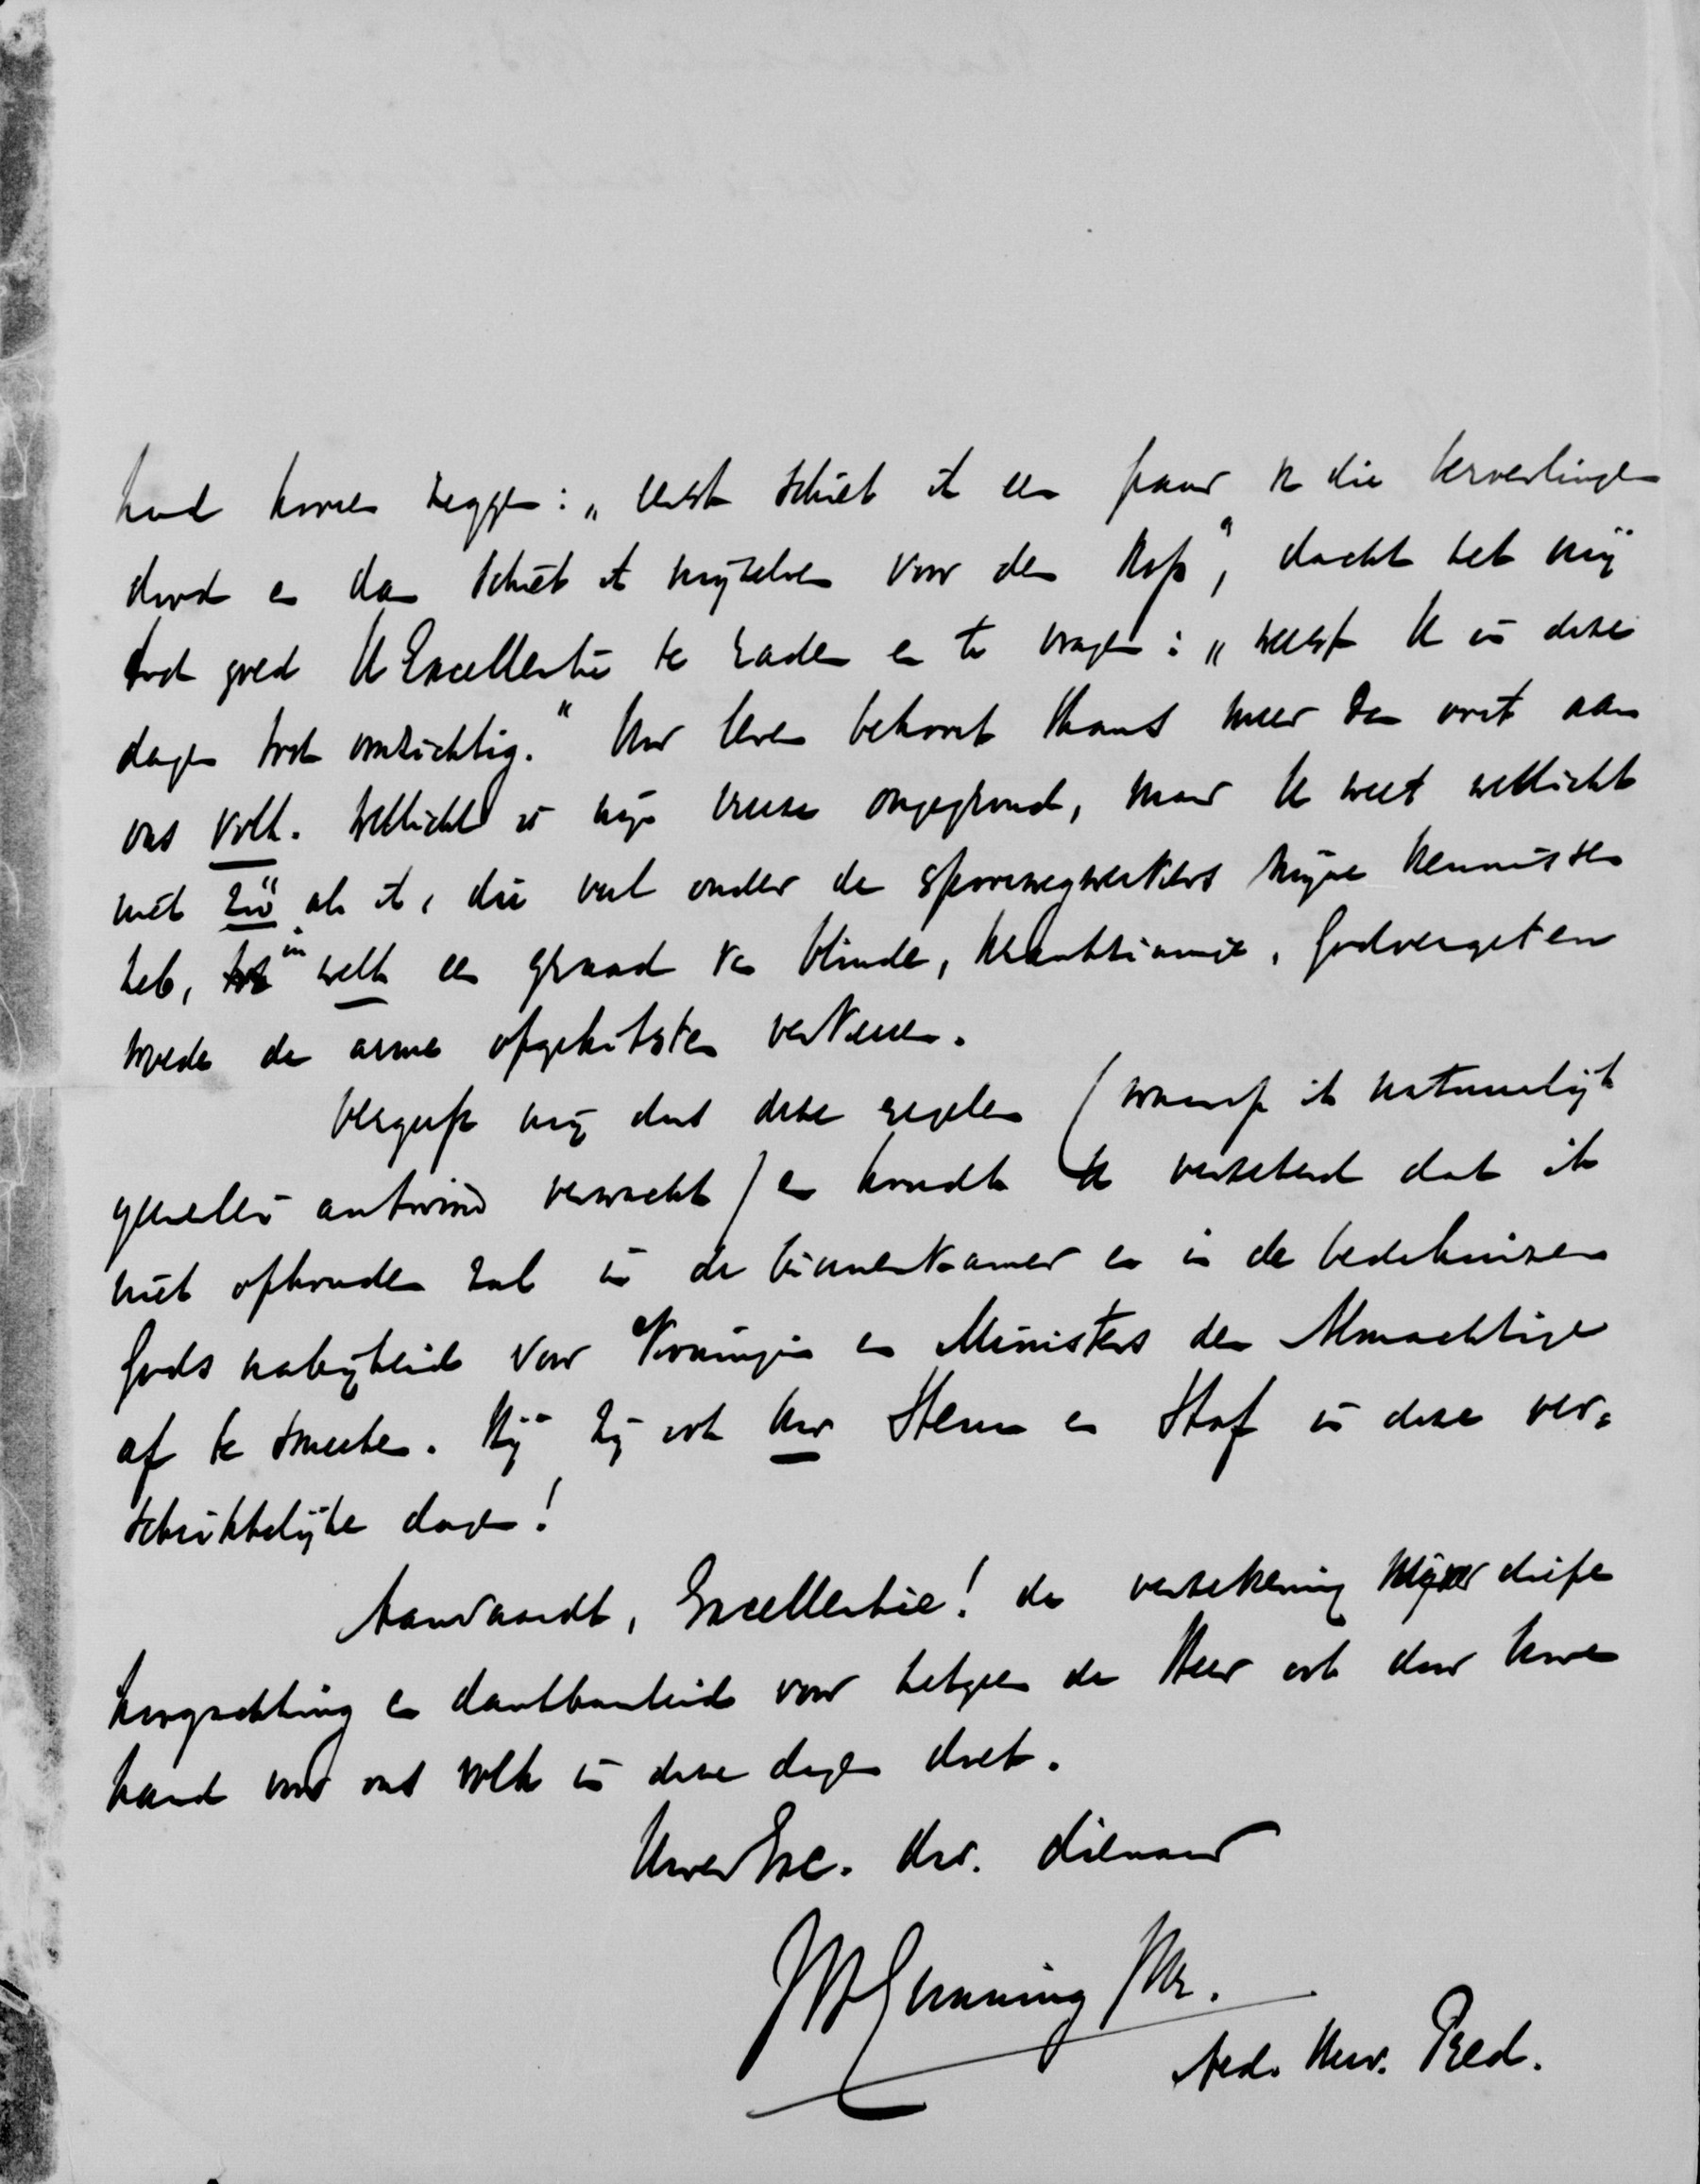 had hooren zeggen: „eerst schiet ik een paar v. die kerverlingen
dood en dan schiet ik mijzelven voor den kop", dacht het mij
toch goed U Excellentie te raden en te vragen: „weest U in deze
dagen toch omzichtig." Uw leven behoort thans meer dan ooit aan
ons volk. Wellicht is mijn vreeze ongegrond, maar U weet wellicht
niet zóó als ik, die veel onder de spoorwegwerkers mijne kennissen
heb, in welk een graad van blinde, krankzinnige, Godvergeten
woede de arme opgehitsten verkeeren.
Vergeef mij dus deze regelen (waarop ik natuurlijk
generlei antwoord verwacht) en houdt U verzekerd dat ik
niet ophouden zal in de binnenkamer en in de bedehuizen
Gods nabijheid voor Koningin en Ministers den Almachtige
af te smeeken. Hij zij ook Uw Steun en Staf in deze ver=
schrikkelijke dagen!
Aanvaardt, Excellentie! de verzekering mijner diepe
hoogachting en dankbaarheid voor hetgeen de Heer ook door Uwe
hand voor ons volk in deze dagen doet.
Uwer Exc. dw. dienaar
JH Gunning JHz.
Ned. Herv. Pred.